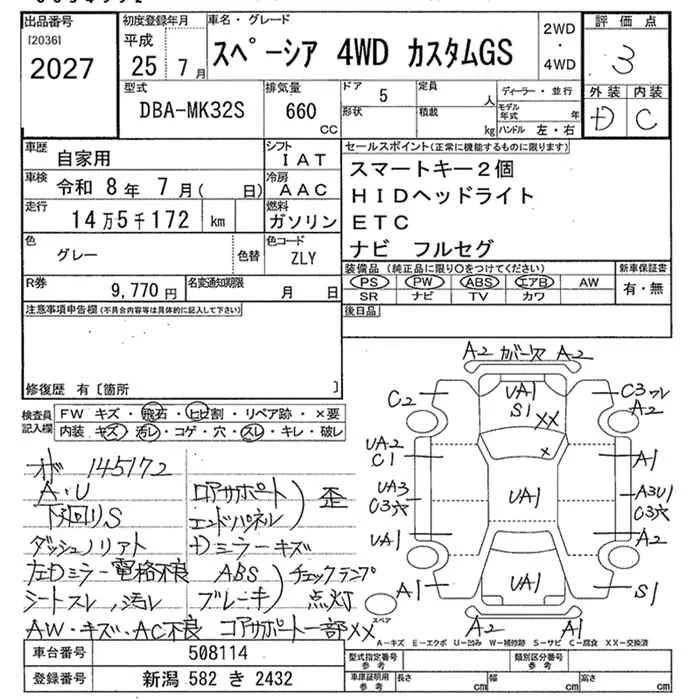 出品番号
[2036]
2027
初度登録年月
平成
25年 7月
車名・グレード
スペーシア 4WD カスタムGS
2WD
・
4WD
評価点
3
外装 内装
D C
型式
DBA-MK32S
排気量
660
CC
ドア 5
形状
定員 人
積載 kg
ディーラー・並行
モデル年式 年
ハンドル 左・右
車歴
自家用
シフト
IAT
車検 令和 8年 7月( 日)
冷房
AAC
走行
14万5千172 km
燃料
ガソリン
色
グレー
色替
色コード
ZLY
R券
9,770円
名変通知期限
月 日
セールスポイント(正常に機能するものに限ります)
スマートキー2個
HIDヘッドライト
ETC
ナビ フルセグ
装備品(純正品に限り○をつけてください)
PS PW ABS エアB AW
SR ナビ TV カワ
新車保証書
有・無
後日品
注意事項申告欄(不具合内容等は具体的に記入して下さい)
修復歴 有〔箇所 〕
検査員記入欄
FW キズ・飛石・ヒビ割・リペア跡・×要
内装 キズ・汚レ・コゲ・穴・スレ・キレ・破レ
145172
A・U
下回りS
ダッシュノリアト
左Dミラー電格不良
シートスレ、汚レ
AW・キズ・AC不良
コアサポート
エンドパネル
歪
Dミラーキズ
ABS
ブレーキ
チェックランプ
点灯
コアサポート一部XX
A2 カバース A2
C2
UA1
S1
XX
×
C3ワレ
A2
UA2
C1
A1
UA3
C3穴
UA1
A3U1
C3穴
UA1
A2
A1
UA1
S1
スペア
A2 A1
A-キズ E-エクボ U-凹み W-補修跡 S-サビ C-腐食 XX-交換済
車台番号
508114
登録番号
新潟 582 き 2432
型式指定番号
参考
類別区分番号
参考
車庫証明用
参考
長さ cm
幅 cm
高さ cm